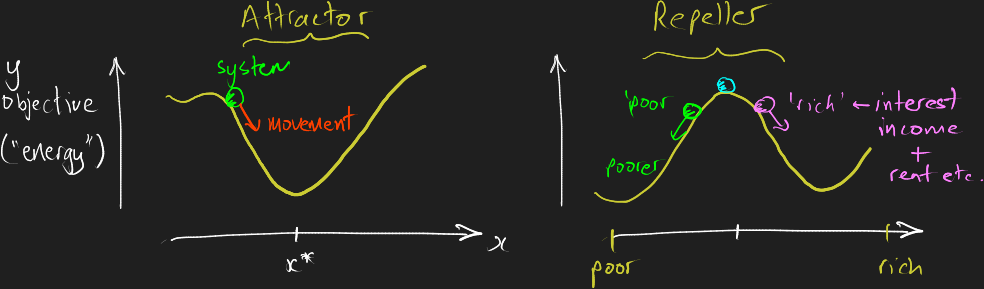 Attractor
y
objective
("energy")
system
movement
x
x*
Repeller
'poor
poorer
'rich' ← interest
income
+
rent etc.
poor
rich